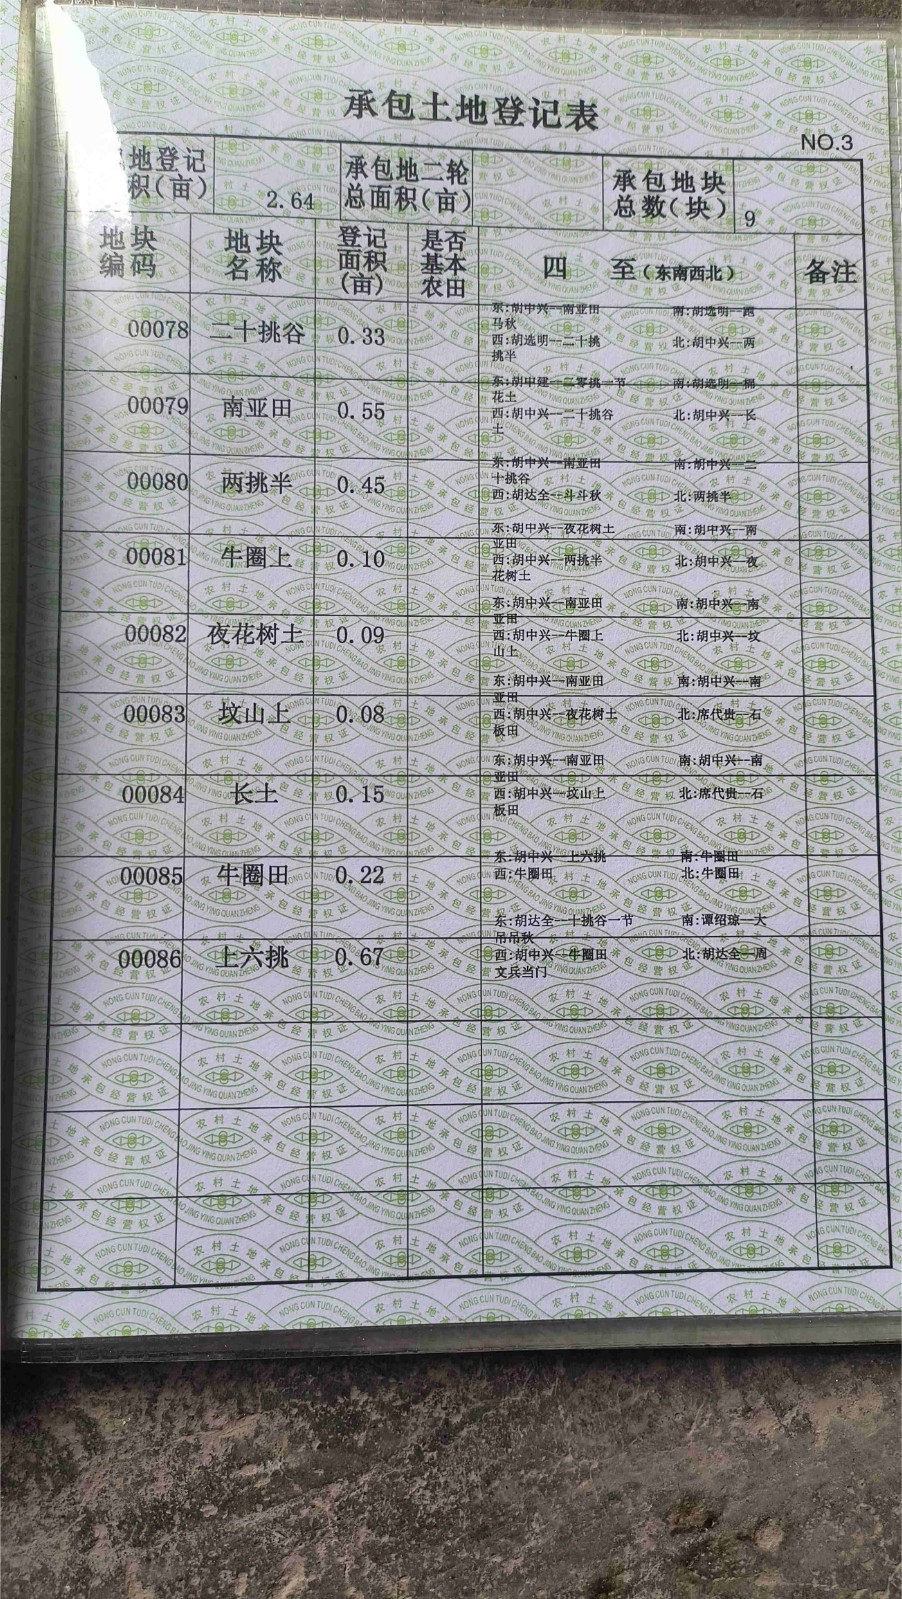 承包土地登记表
NO.3
地登记 承包地二轮 承包地块
积(亩) 2.64 总面积(亩) 总数(块) 9
地块 地块 登记 是否
编码 名称 面积 基本 四 至(东南西北) 备注
(亩) 农田
东:胡中兴--南亚田 南:胡选明--跑
00078 二十挑谷 0.33 马秋
西:胡选明--二十挑 北:胡中兴--两
挑半
东:胡中建--二零挑一节 南:胡选明--棉
00079 南亚田 0.55 花土
西:胡中兴--二十挑谷 北:胡中兴--长
土
东:胡中兴--南亚田 南:胡中兴--二
00080 两挑半 0.45 十挑谷
西:胡达全--斗斗秋 北:两挑半
东:胡中兴--夜花树土 南:胡中兴--南
00081 牛圈上 0.10 亚田
西:胡中兴--两挑半 北:胡中兴--夜
花树土
东:胡中兴--南亚田 南:胡中兴--南
00082 夜花树土 0.09 亚田
西:胡中兴--牛圈上 北:胡中兴--坟
山上
东:胡中兴--南亚田 南:胡中兴--南
00083 坟山上 0.08 亚田
西:胡中兴--夜花树土 北:席代贵--石
板田
东:胡中兴--南亚田 南:胡中兴--南
00084 长土 0.15 亚田
西:胡中兴--坟山上 北:席代贵--石
板田
东:胡中兴--上六挑 南:牛圈田
00085 牛圈田 0.22 西:牛圈田 北:牛圈田
东:胡达全--十挑谷一节 南:谭绍琼--大
00086 上六挑 0.67 吊吊秋
西:胡中兴--牛圈田 北:胡达全--周
文兵当门